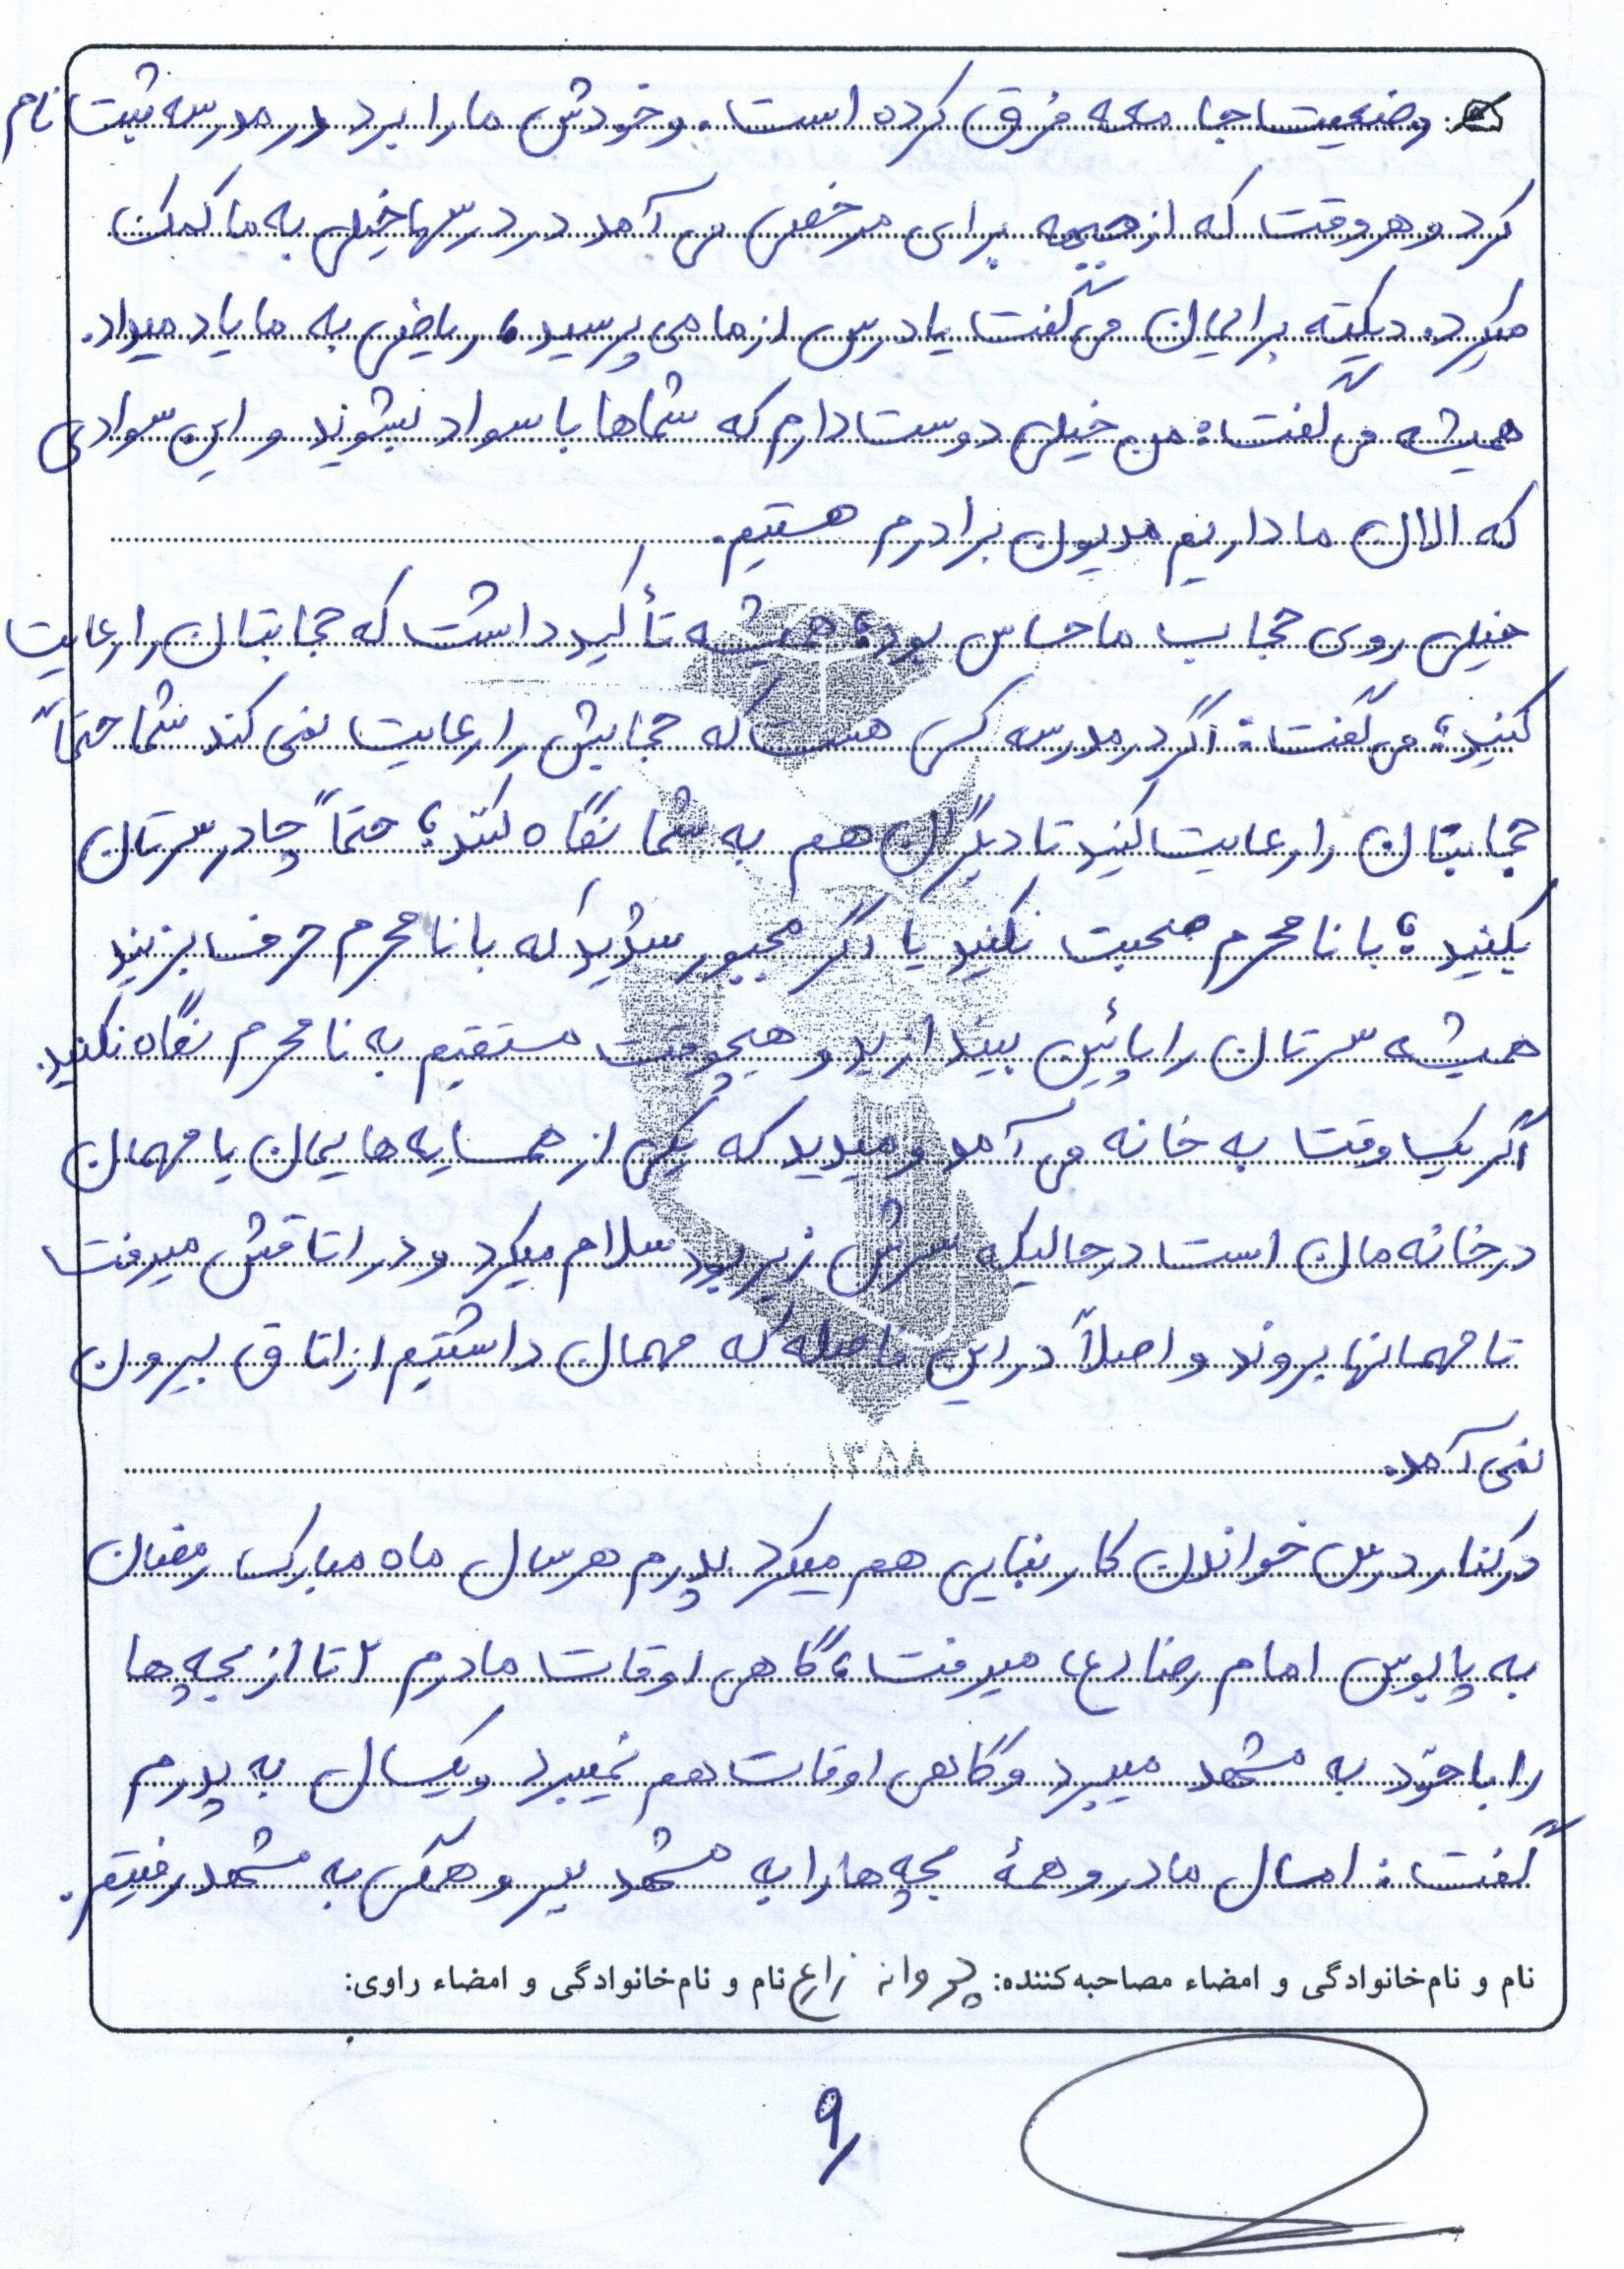 وضعیت جامعه فرق کرده است. و خودش ما را برد در مدرسه ثبت نام
کرد و هر وقت که از جبهه برای مرخصی می آمد در درسها خیلی به ما کمک
میکرد. دیکته برایمان می گفت یا درس از ما می پرسید، ریاضی به ما یاد میداد.
همیشه می گفت: من خیلی دوست دارم که شماها با سواد بشوید و این سوادی
که الان ما داریم مدیون برادرم هستیم.
خیلی روی حجاب ما حساس بود؛ همیشه تأکید داشت که حجابتان را رعایت
کنید؛ می گفت: اگر در مدرسه کسی هست که حجابش را رعایت نمی کند شما حتماً
حجابتان را رعایت کنید تا دیگران هم به شما نگاه کنند؛ حتماً چادر سرتان
بکنید؛ با نامحرم صحبت نکنید یا اگر مجبور شدید که با نامحرم حرف بزنید
همیشه سرتان را پائین بیندازید و هیچوقت مستقیم به نامحرم نگاه نکنید.
اگر یک وقت به خانه می آمد و میدید که یکی از همسایه هایمان یا مهمان
در خانه مان است در حالیکه سرش زیر بود سلام میکرد و در اتاقش میرفت
تا مهمانها بروند و اصلاً در این فاصله که مهمان داشتیم از اتاق بیرون
نمی آمد.
۱۳۵۸
در کنار درس خواندن کار بنایی هم میکرد. پدرم هر سال ماه مبارک رمضان
به پابوس امام رضا (ع) میرفت، گاهی اوقات مادرم ۲ تا از بچه ها
را با خود به مشهد میبرد و گاهی اوقات هم نمیبرد. یکسال به پدرم
گفت: امسال مادر و همۀ بچه ها را به مشهد ببر و همگی به مشهد رفتیم.
نام و نام خانوادگی و امضاء مصاحبه کننده: پروانه زارع نام و نام خانوادگی و امضاء راوی:
۹